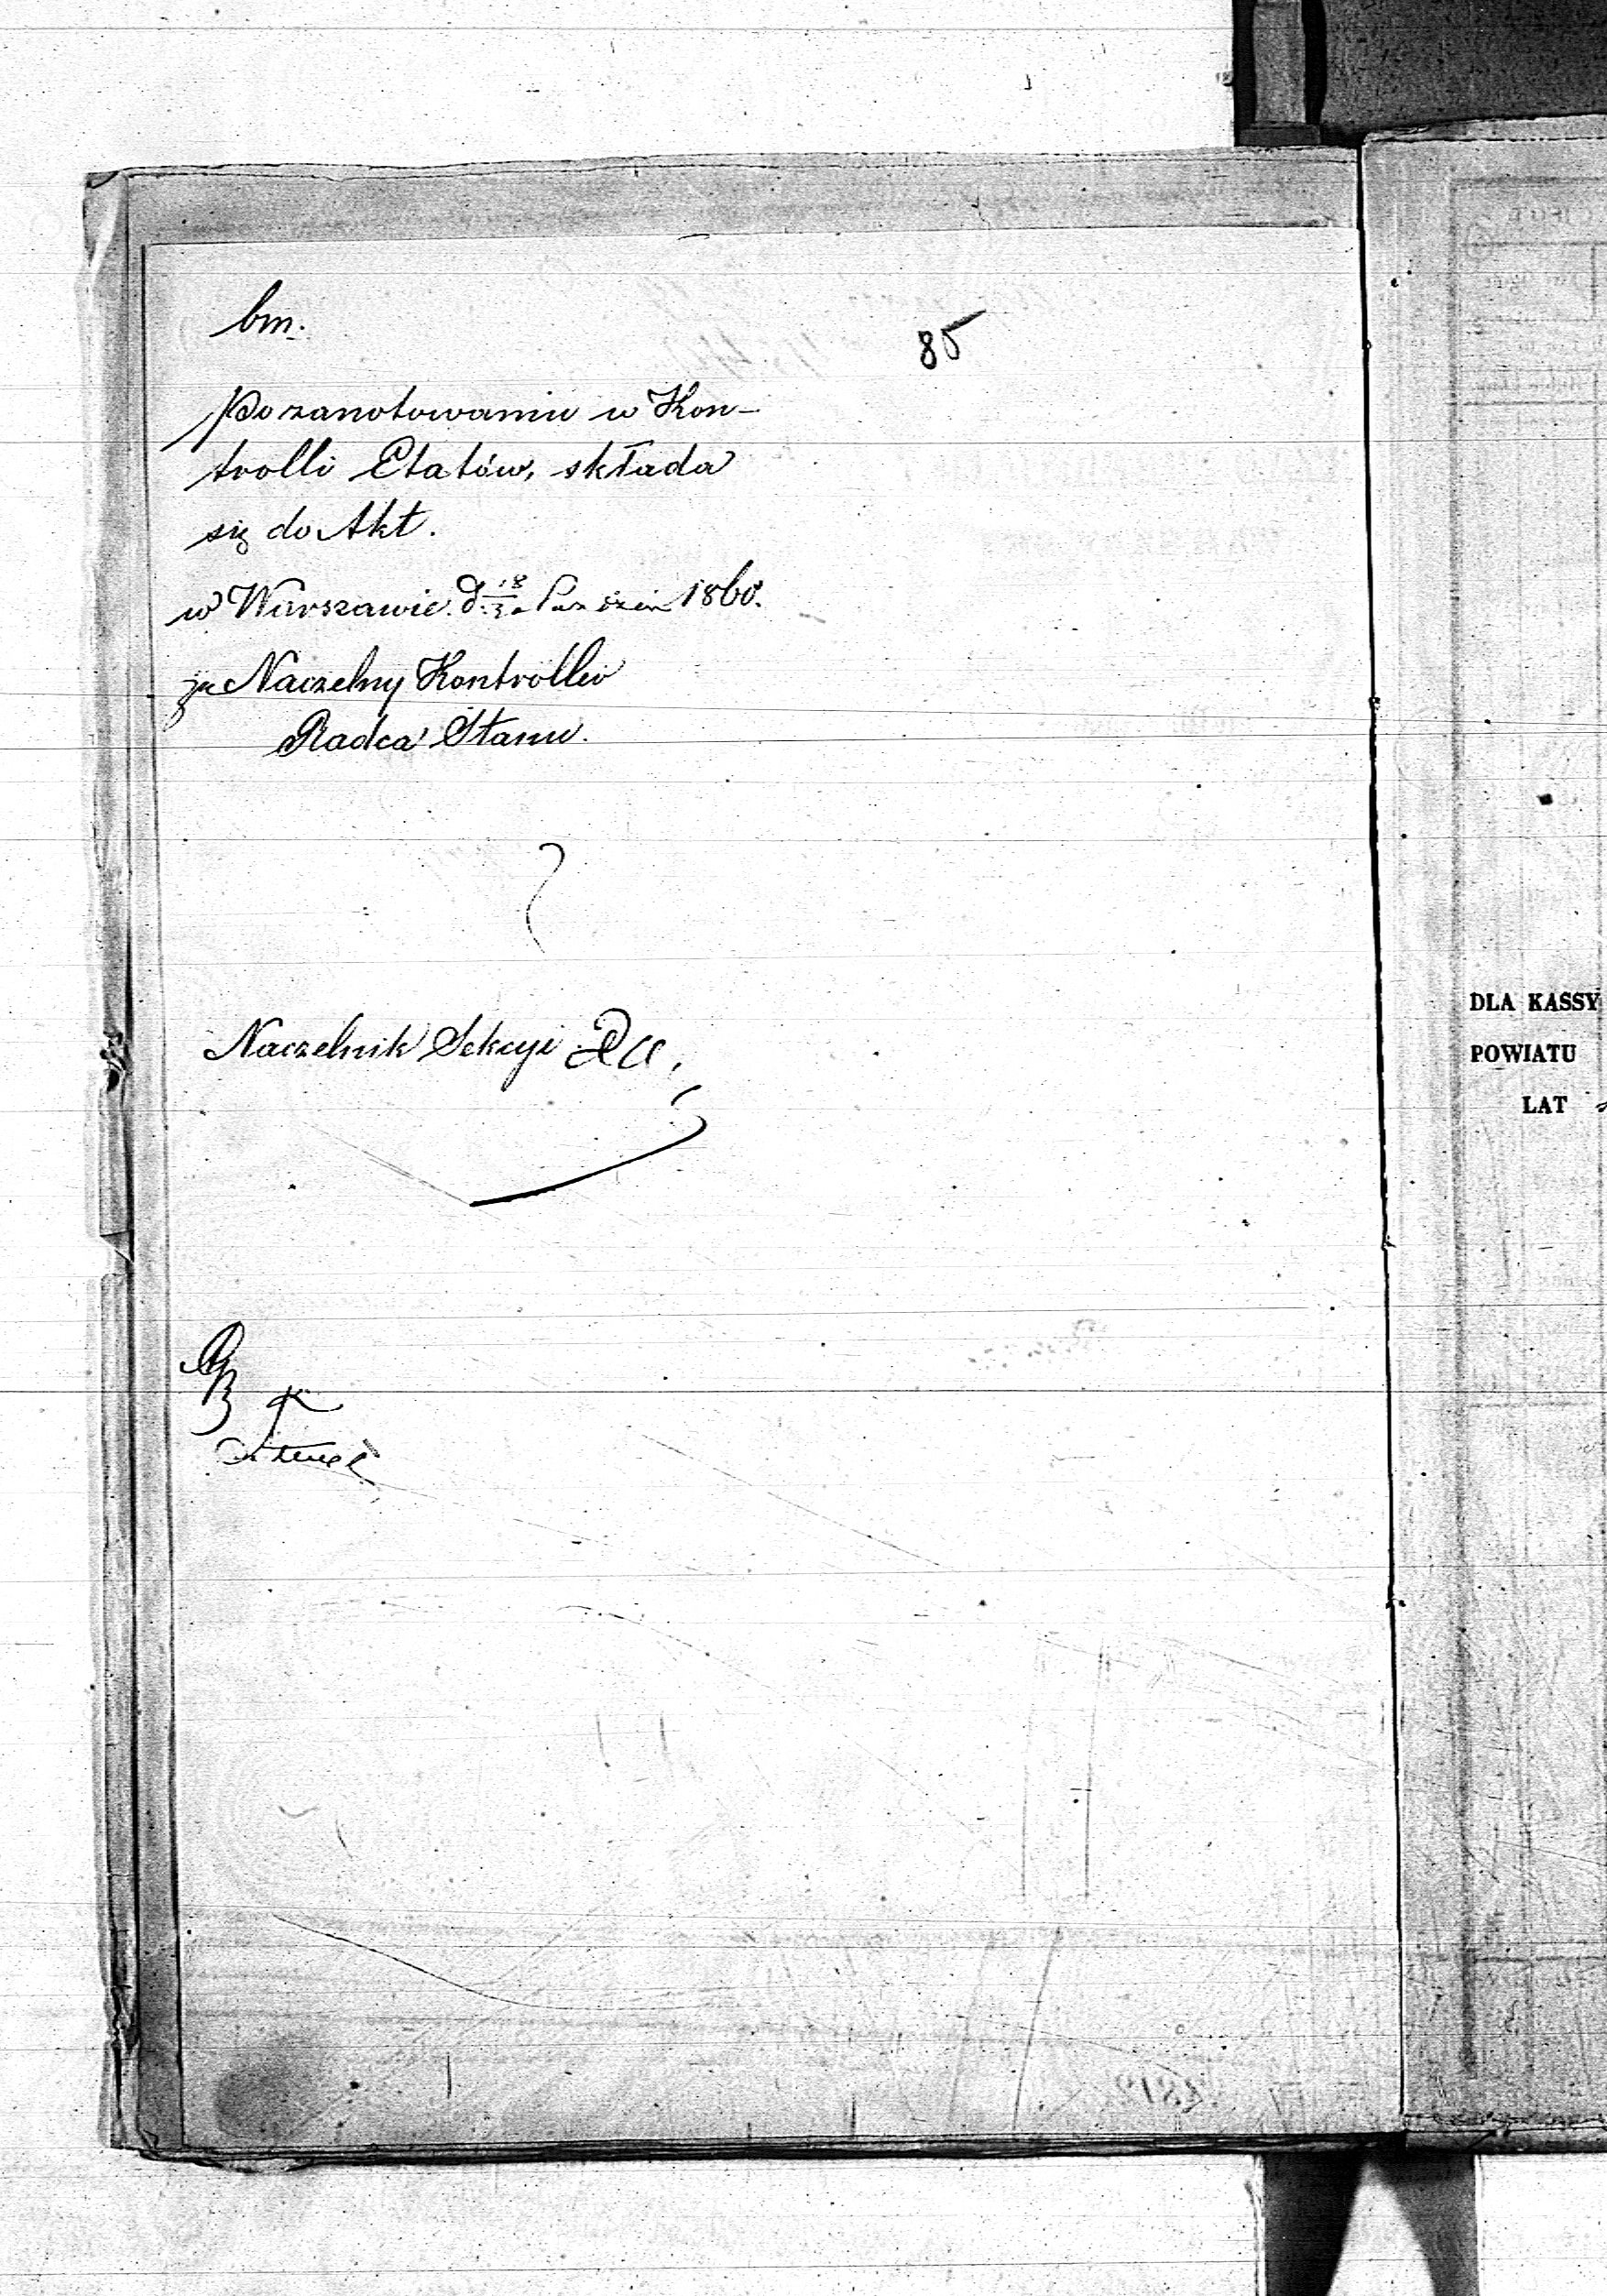 bm.
85
Po zanotowaniu w Kon-
trolli Etatów, składa
się do Akt.
w Warszawie d. 18/30 Paździer 1860.
za Naczelny Kontroller
Radca Stanu.
Naczelnik Sekcyi
DLA KASSY
POWIATU
LAT